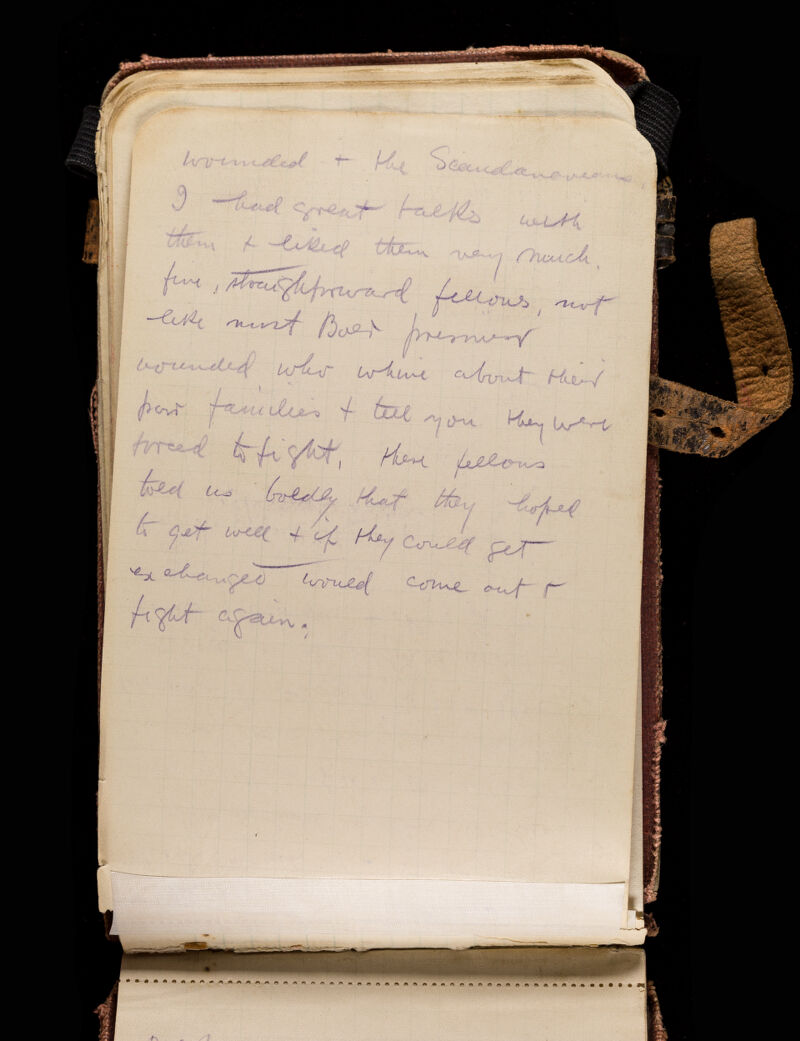 wounded + the Scandanavians.
I had great talks with
them + liked them very much.
fine, straightforward fellows, not
like most Boer prisoners
wounded who whine about their
poor families + tell you they were
forced to fight, these fellows
told us boldly that they hoped
to get well + if they could get
exchanged would come out +
fight again.